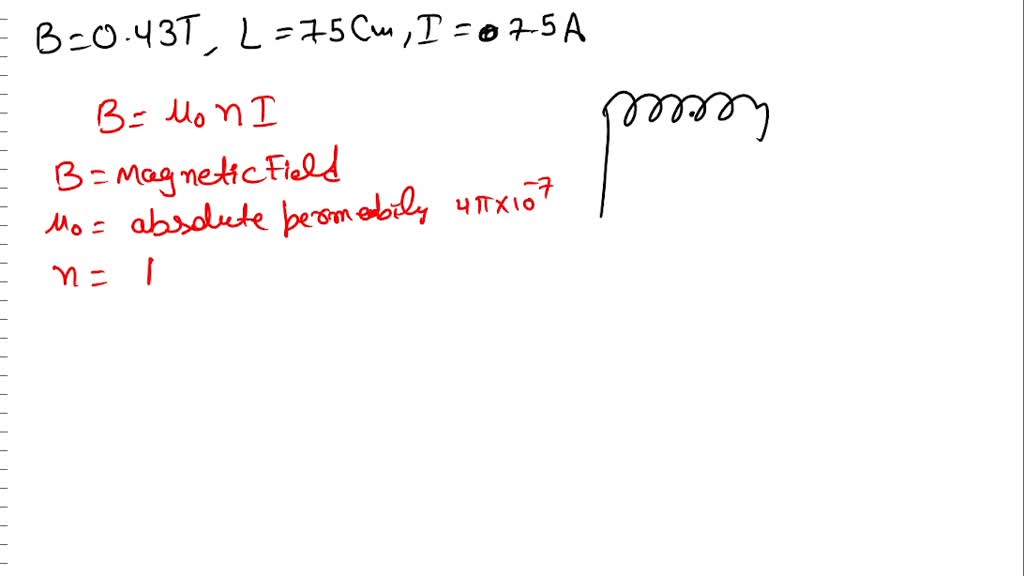 B=0.43T, L=75Cm, I=07.5A
B= μ₀ n I
B= Magnetic Field
μ₀= absolute permeabily 4π×10⁻⁷
n= l